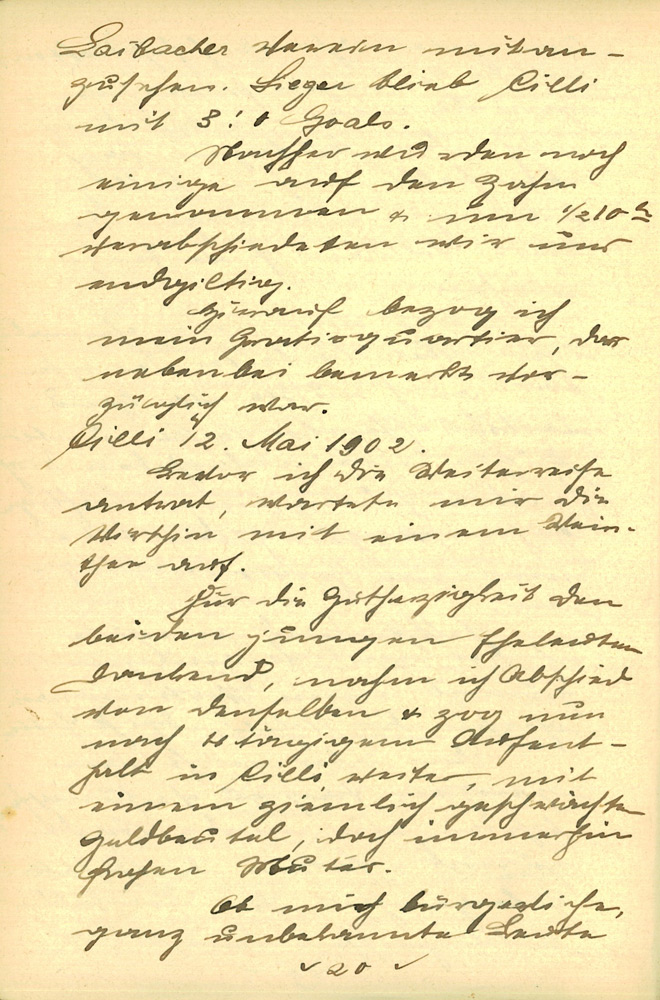 Laibacher Verein mitan-
zusehen. Sieger blieb Cilli
mit 3:0 Goals.
Nachher wurden noch
einige auf den Zahn
genommen & um ½10 h
verabschiedeten wir uns
endgiltig.
Hierauf bezog ich
mein Gratisquartier, das
nebenbei bemerkt vor-
züglich war.
Cilli 12. Mai 1902.
Bevor ich die Weiterreise
antrat, wartete mir die
Wirthin mit einem Wein-
thee auf.
Für die Gutherzigkeit den
beiden jungen Eheleuten
dankend, nahm ich Abschied
von denselben & zog nun
nach tägigem Aufent-
halt in Cilli weiter, mit
einem ziemlich geschwächten
Geldbeutel, doch immerhin
frohen Mutes.
Ob mich bürgerliche,
ganz unbekannte Leute
20